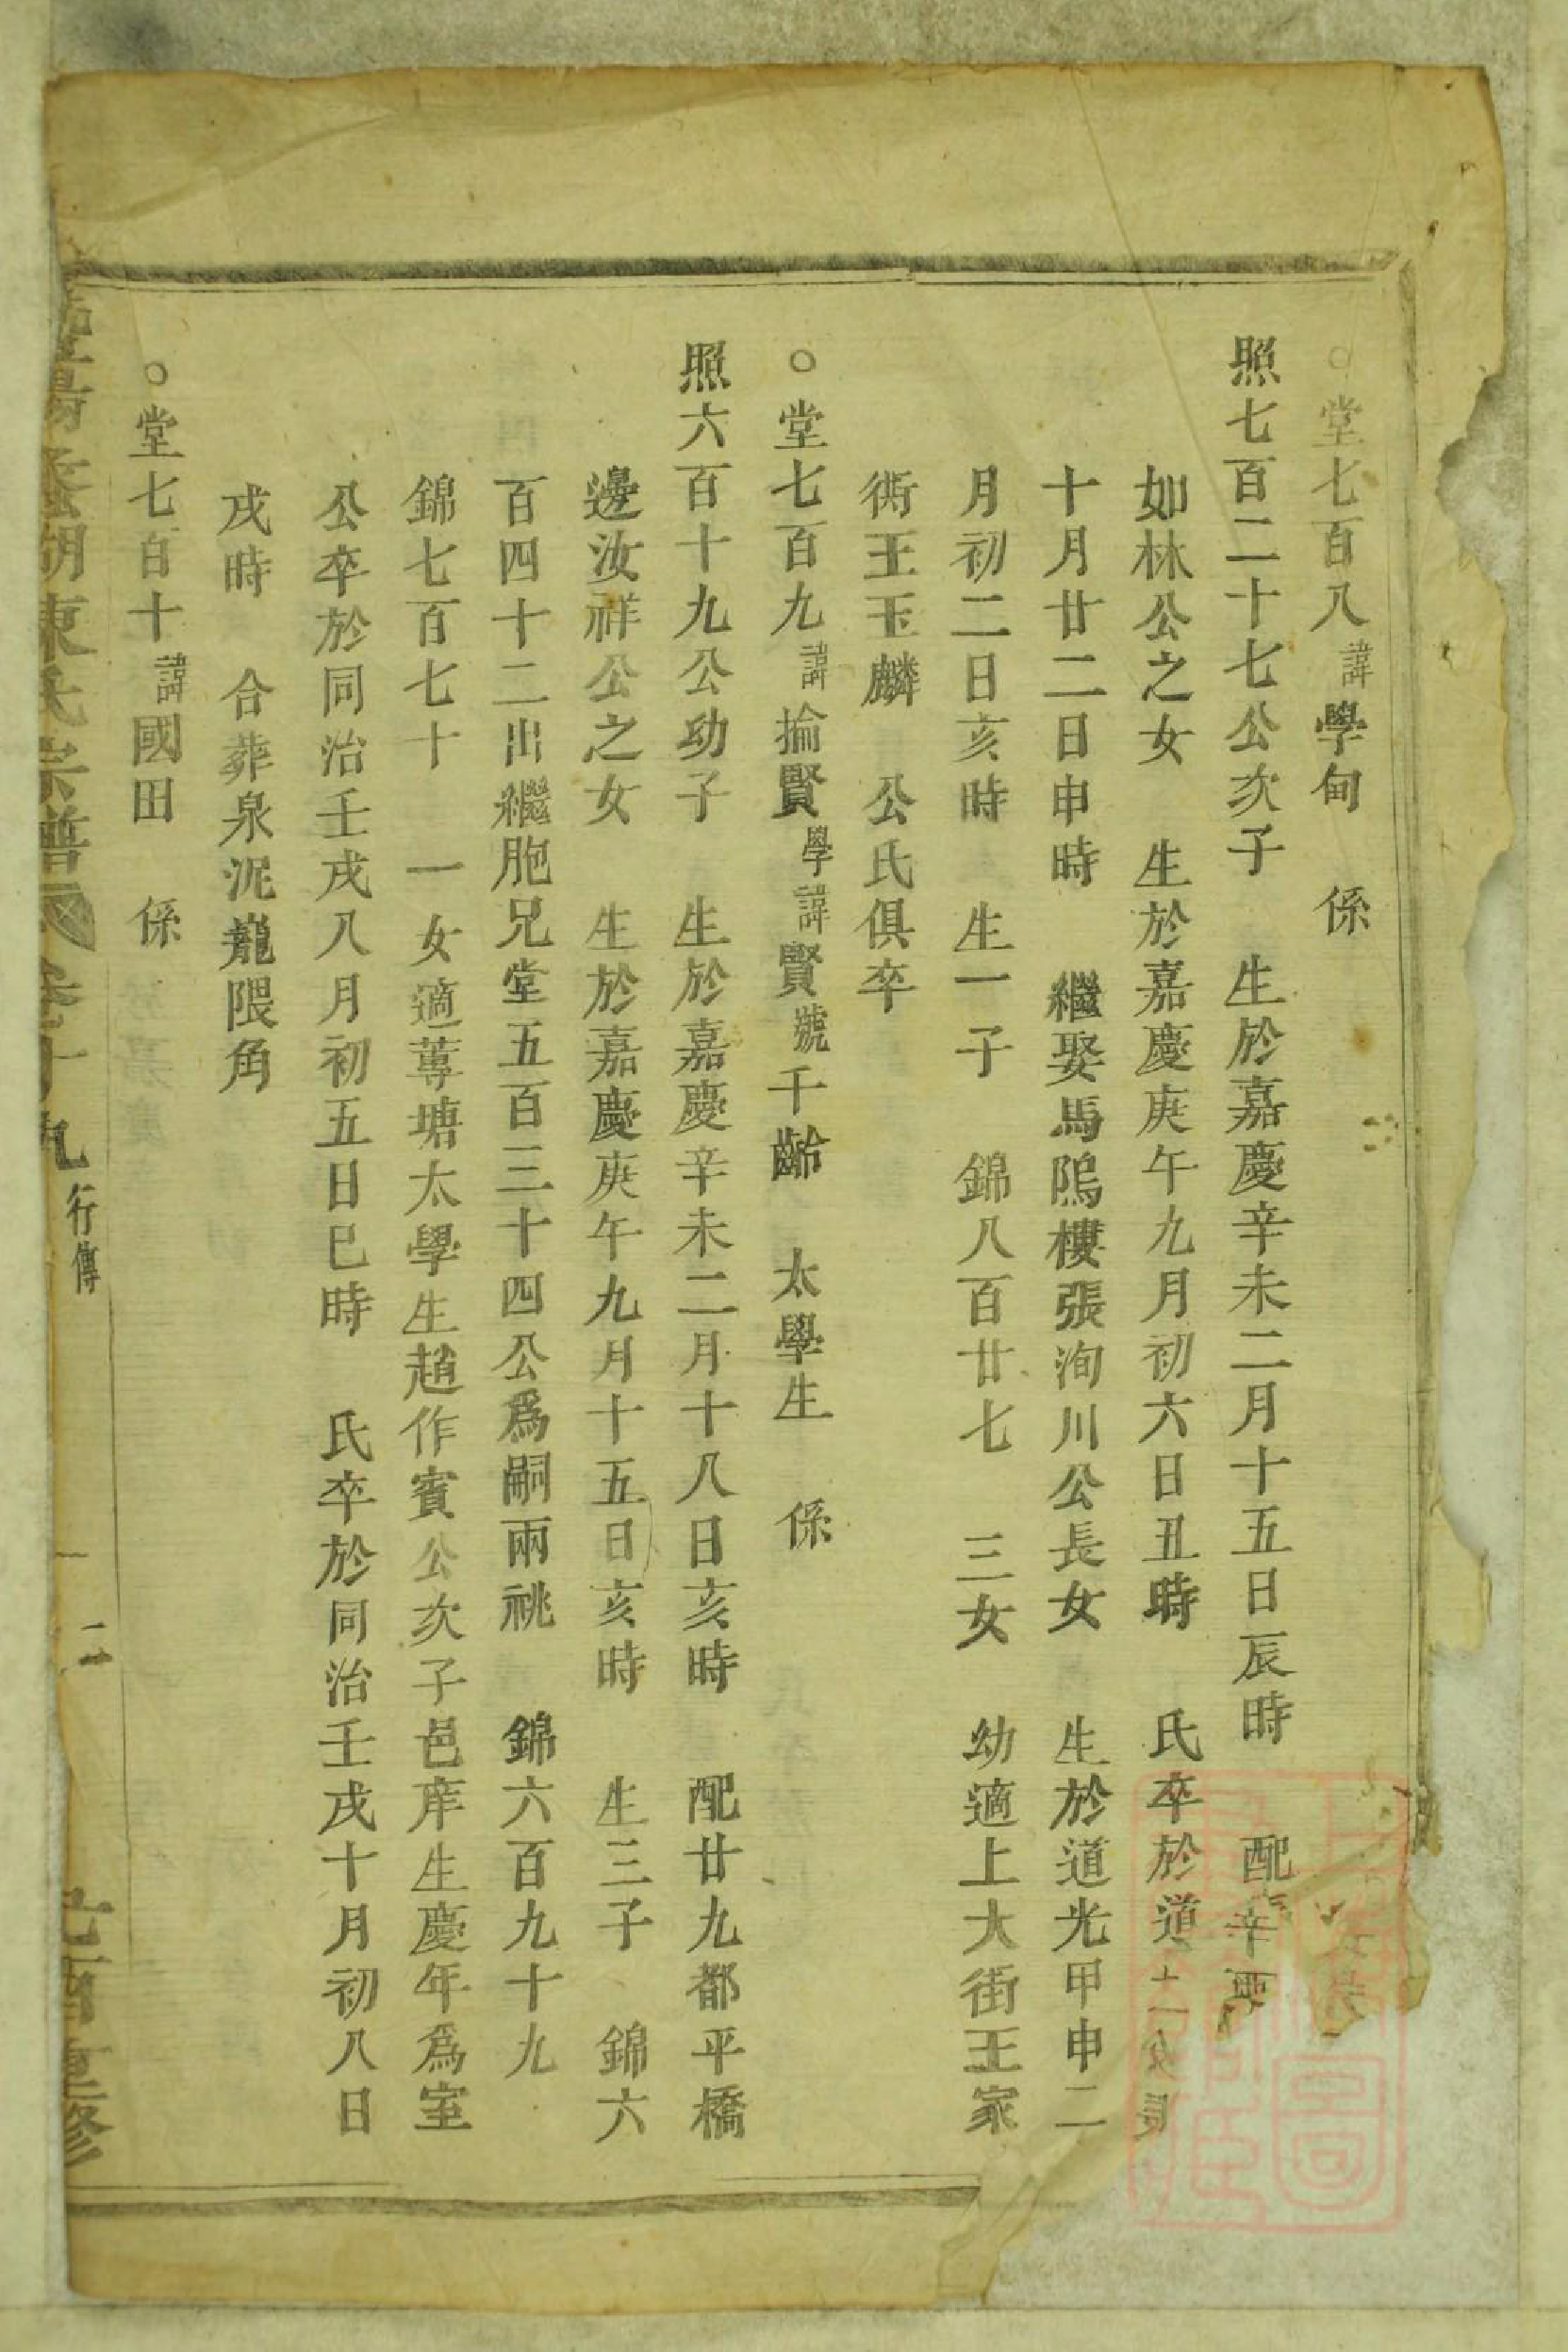 ○堂七百八諱學甸　係
照七百二十七公次子　生於嘉慶辛未二月十五日辰時　配辛
如林公之女　生於嘉慶庚午九月初六日丑時　氏卒於道
十月廿二日申時　繼娶馬隖樓張洵川公長女　生於道光甲申二
月初二日亥時　生一子　錦八百廿七　三女　幼適上大街王家
衖王玉麟　公氏俱卒
○堂七百九諱掄賢學諱賢號千齡　太學生　係
照六百十九公幼子　生於嘉慶辛未二月十八日亥時　配廿九都平橋
邊汝祥公之女　生於嘉慶庚午九月十五日亥時　生三子　錦六
百四十二出繼胞兄堂五百三十四公爲嗣兩祧　錦六百九十九
錦七百七十　一女適蓴塘太學生趙作賓公次子邑庠生慶年爲室
公卒於同治壬戌八月初五日巳時　氏卒於同治壬戌十月初八日
戌時　合葬泉泥龍隈角
○堂七百十諱國田　係
東氏宗譜　卷十九　行傳　二　重修